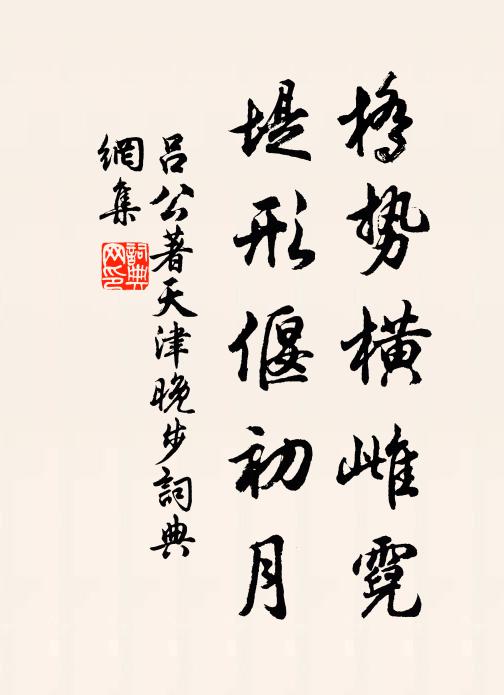 橋势橫雌霓
堤形偃初月
吕公著天津晚步詞典
網集
詞典网印